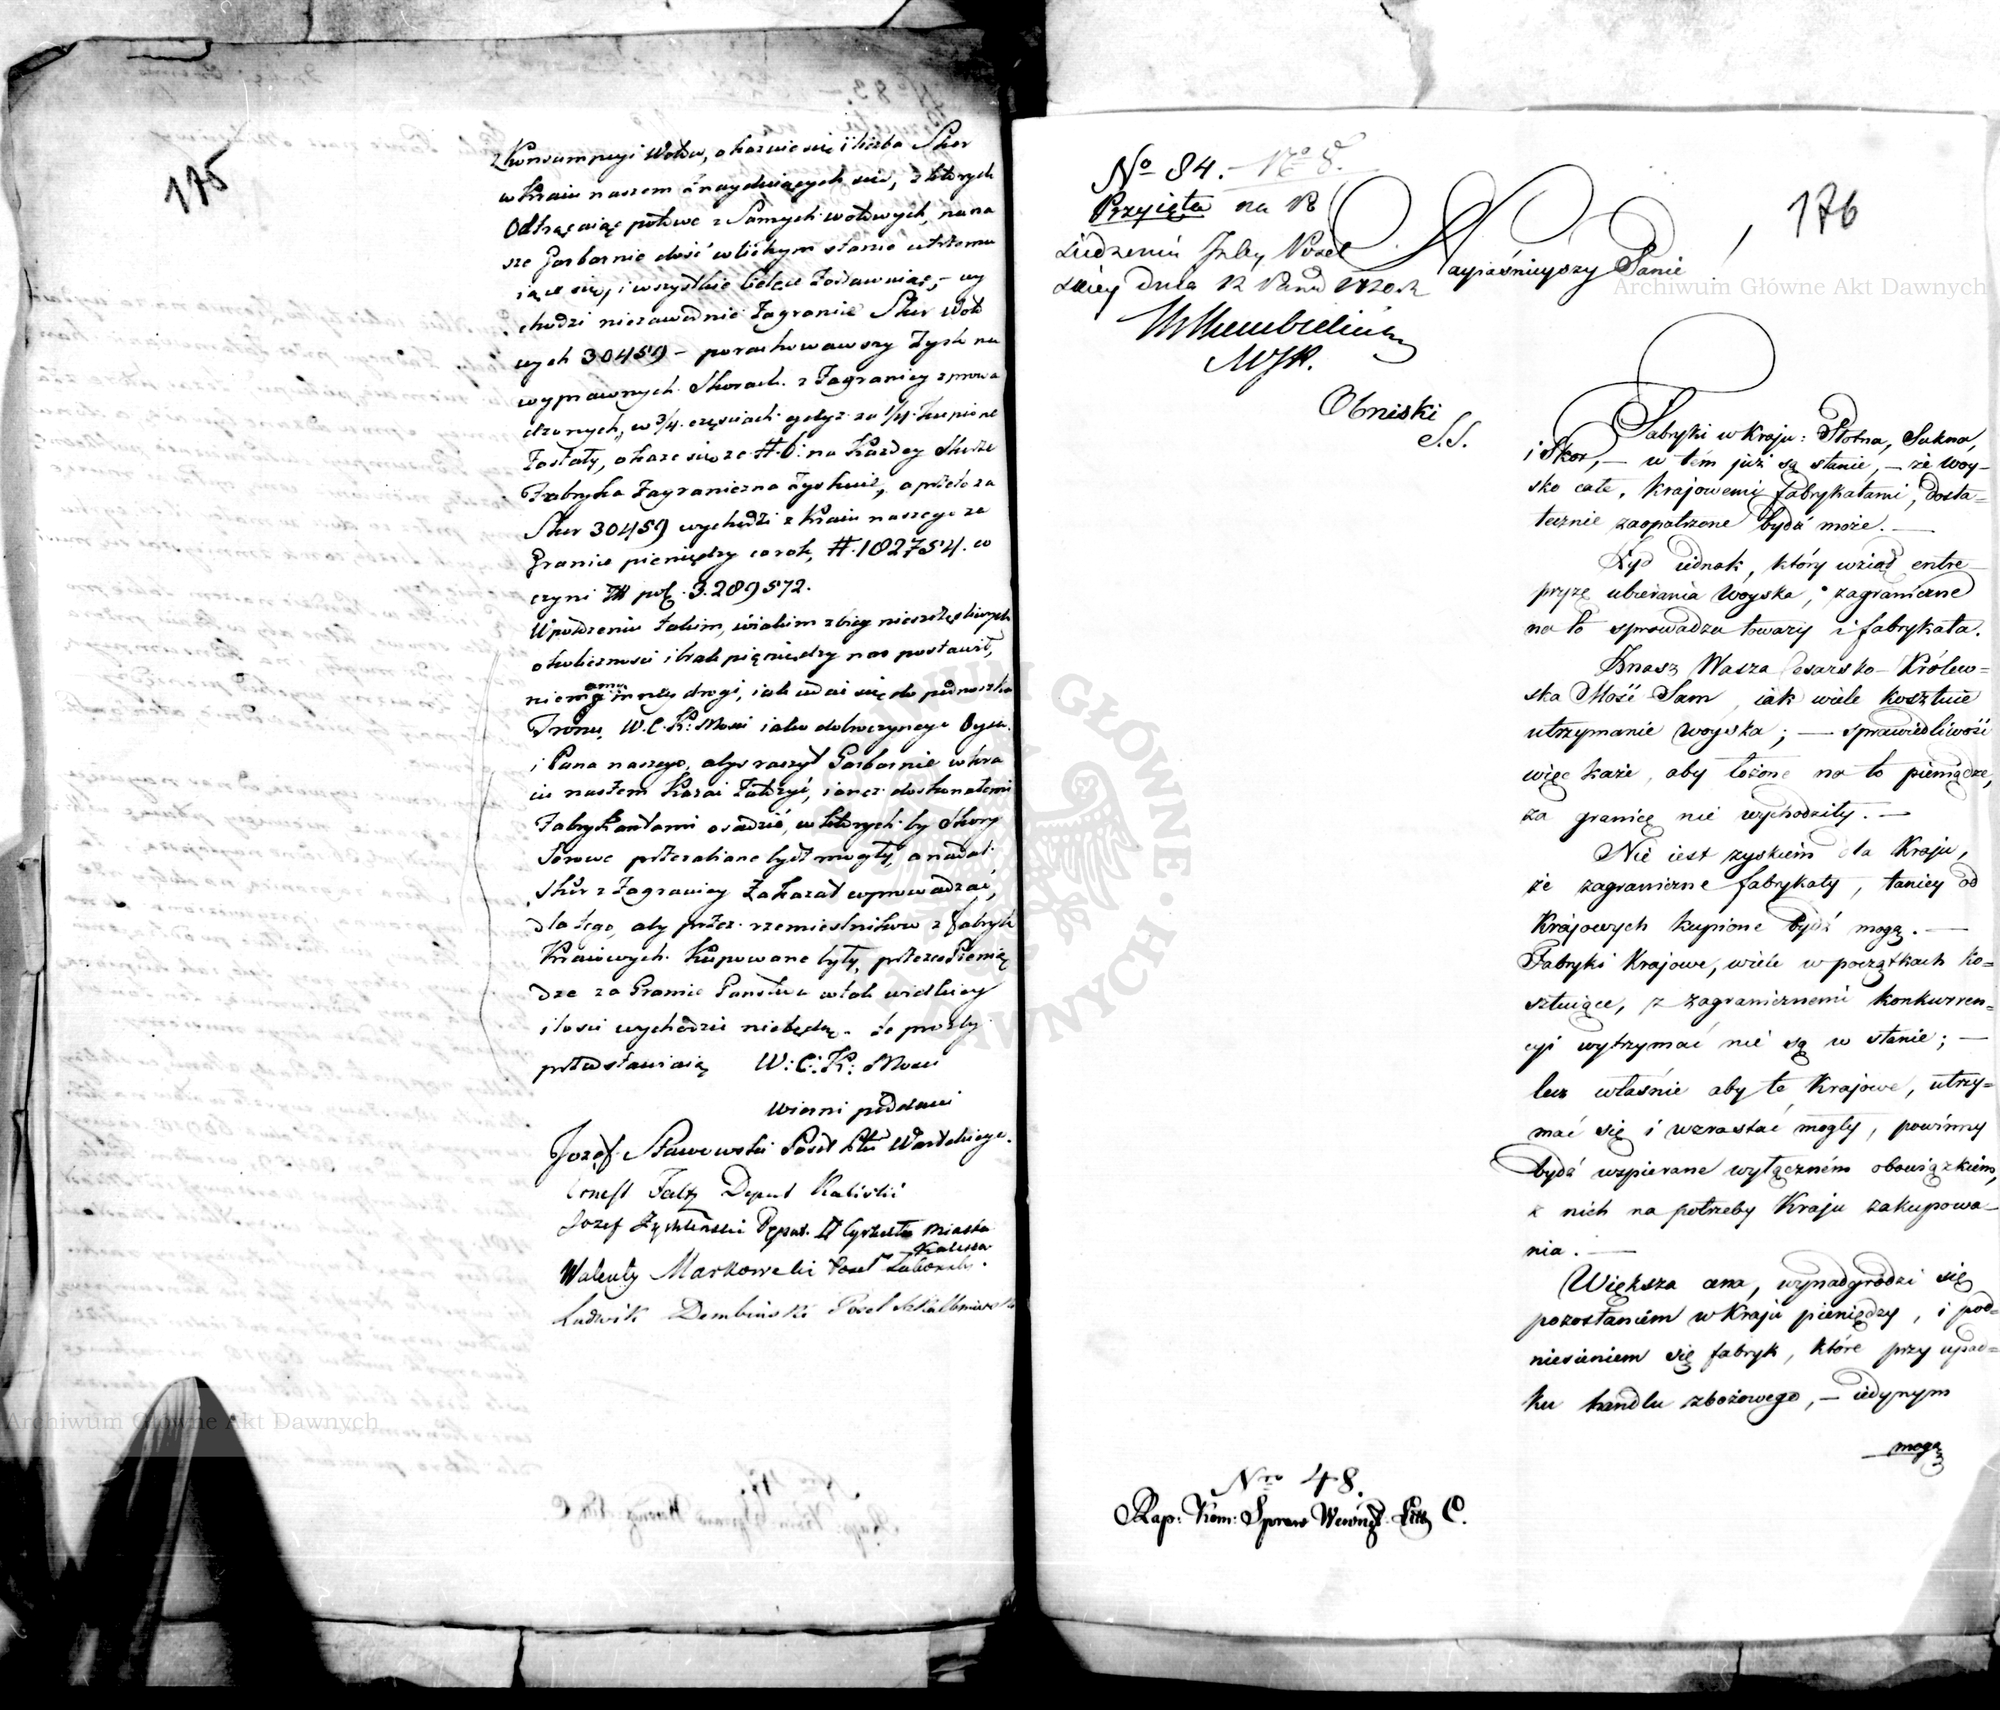 175
z Konsumpcyi Wołów, okazuie się i liczba Skor
w Kraiu naszem znayduiących się, z ktorych
Odtrącaiąc połowę z Samych wołowych, na na
sze Garbarnie dość w lichym stanie utrzymu
iące się, i wszystkie Cielęce zostawuiąc, wy
chodzi niezawodnie Zagranicę Skur Woło
wych 30459 – porachowawszy Zysk na
wyprawnych Skorach z Zagranicy sprowa
dzonych, w 3/4 częsciach gdyż za 1/4 kupione
Zostały, okaże się że # 6: na Każdey Skurze
Fabryka Zagraniczna Zyskuie, a przeto za
Skur 30459 wychodzi z Kraiu naszego za
Granicę pieniędzy co rok, # 182754. co
czyni pol. 3.289572.
W położeniu takim, w iakim zbieg nieszczęsliwych
okoliczności i brak pieniędzy nas postawił,
niemamy inney drogi, iak udać się do podnoszka
Tronu, W.C.K: Mosci iako dobroczynego Oyca
i Pana naszego, aby raczył Garbarnie w kra
iu naszem Kazać Założyć, i onez doskonałemi
Fabrykantami osadzić, w ktorych by Skory
Surowe przerabiane bydź mogły, a nadal
Skur z Zagranicy Zakazał wprowadzać,
dla tego, aby przez rzemieslnikow z fabryk
Kraiowych Kupowane były, przezco Pienią
dze za Granicę Państwa w tak wielkiey
ilosci wychodzić niebędą. Te prozby
przedstawiaią W: C: K: Mosci
wierni poddani
Jozef Stawowski Poseł Ptu Wartskiego.
Ernest Faltz Deput Kaliski
Jozef Zychlinski Deput. II Cyrkułu Miasta
Kalisza
Walenty Markowski Poseł
Ludwik Dembinski Poseł Szkalbmierski
No 84. No 8.
Przyięta na 12
Siedzeniu Izby Posel
skiey dnia 12 1820 r
MJP.
Obniski
S.S.
176
Nayiaśnieyszy Panie
Fabryki w Kraju: Płotna, Sukna,
i Skor, — w tém już są stanie, — że woy-
sko całe, Krajowemi fabrykatami, dosta-
tecznie zaopatrzone bydź może. —
Żyd iednak, który wziął entre-
pryzę ubierania Woyska, zagraniczne
na to sprowadza towary i fabrykata.
Znasz Wasza Cesarsko-Królew-
ska Mość Sam, iak wiele kosztuie
utrzymanie woyska; — sprawiedliwość
więc każe, aby łożone na to pieniądze,
za granicę nie wychodziły. —
Nie iest zyskiem dla Kraju,
że zagraniczne fabrykaty, taniey od
Krajowych kupione bydź mogą. —
Fabryki Krajowe, wiele w początkach ko-
sztuiące, z zagranicznemi konkurren-
cyi wytrzymać nie są w stanie; —
lecz właśnie aby te Krajowe, utrzy-
mać się i wzrastać mogły, powinny
bydź wspierane wyłączném obowiązkiem,
z nich na potrzeby Kraju zakupowa-
nia. —
Większa cena, wynadgrodzi się
pozostaniem w Kraju pieniędzy, i pod-
niesieniem się fabryk, które przy upad-
ku handlu zbożowego, — iedynym
mogą
Nro 48.
Rap: Kom: Spraw Wewnęt. Litt C.
Archiwum Główne Akt Dawnych
Archiwum Główne Akt Dawnych